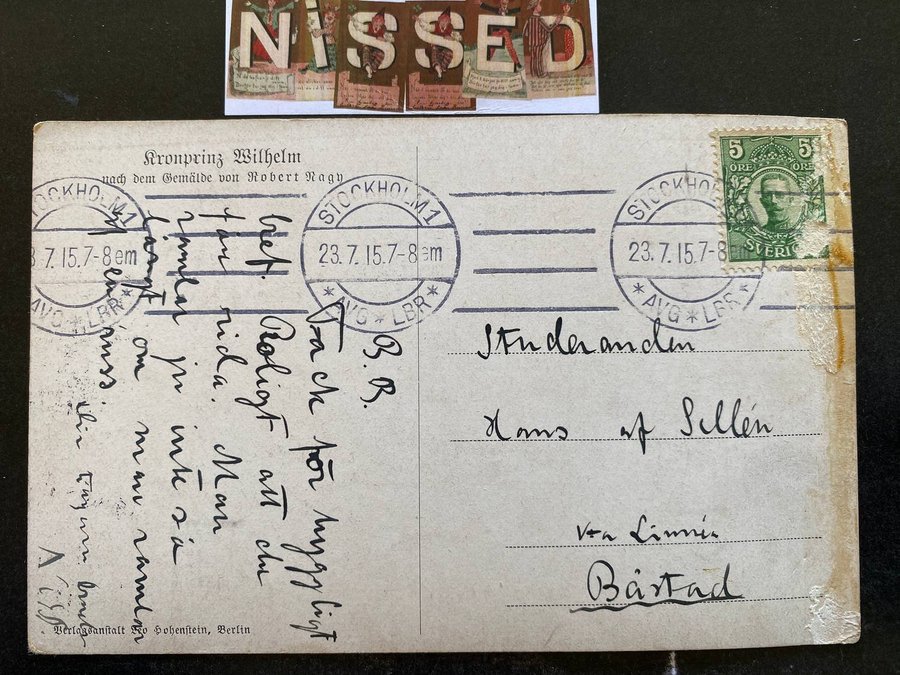 NISSED
Kronprinz Wilhelm
nach dem Gemälde von Robert Nagy
STOCKHOLM 1
23.7.15.7-8 em
* AVG * LBR *
STOCKHOLM 1
23.7.15.7-8 em
* AVG * LBR *
STOCKHOLM 1
23.7.15.7-8
* AVG * LBR *
5 5
ÖRE ÖRE
SVERIGE
B. B.
Tack för hyggligt
bref. Roligt att du
får rida. Man
ramlar ju inte så
långt om man ramlar
Studeranden
Hans af Sillén
Båstad
Verlagsanstalt Leo Hohenstein, Berlin